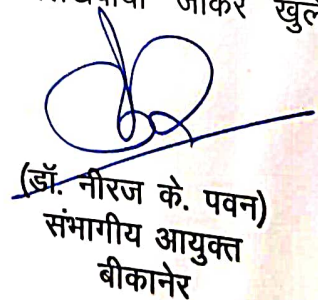 जाकर
(डॉ. नीरज के. पवन)
संभागीय आयुक्त
बीकानेर